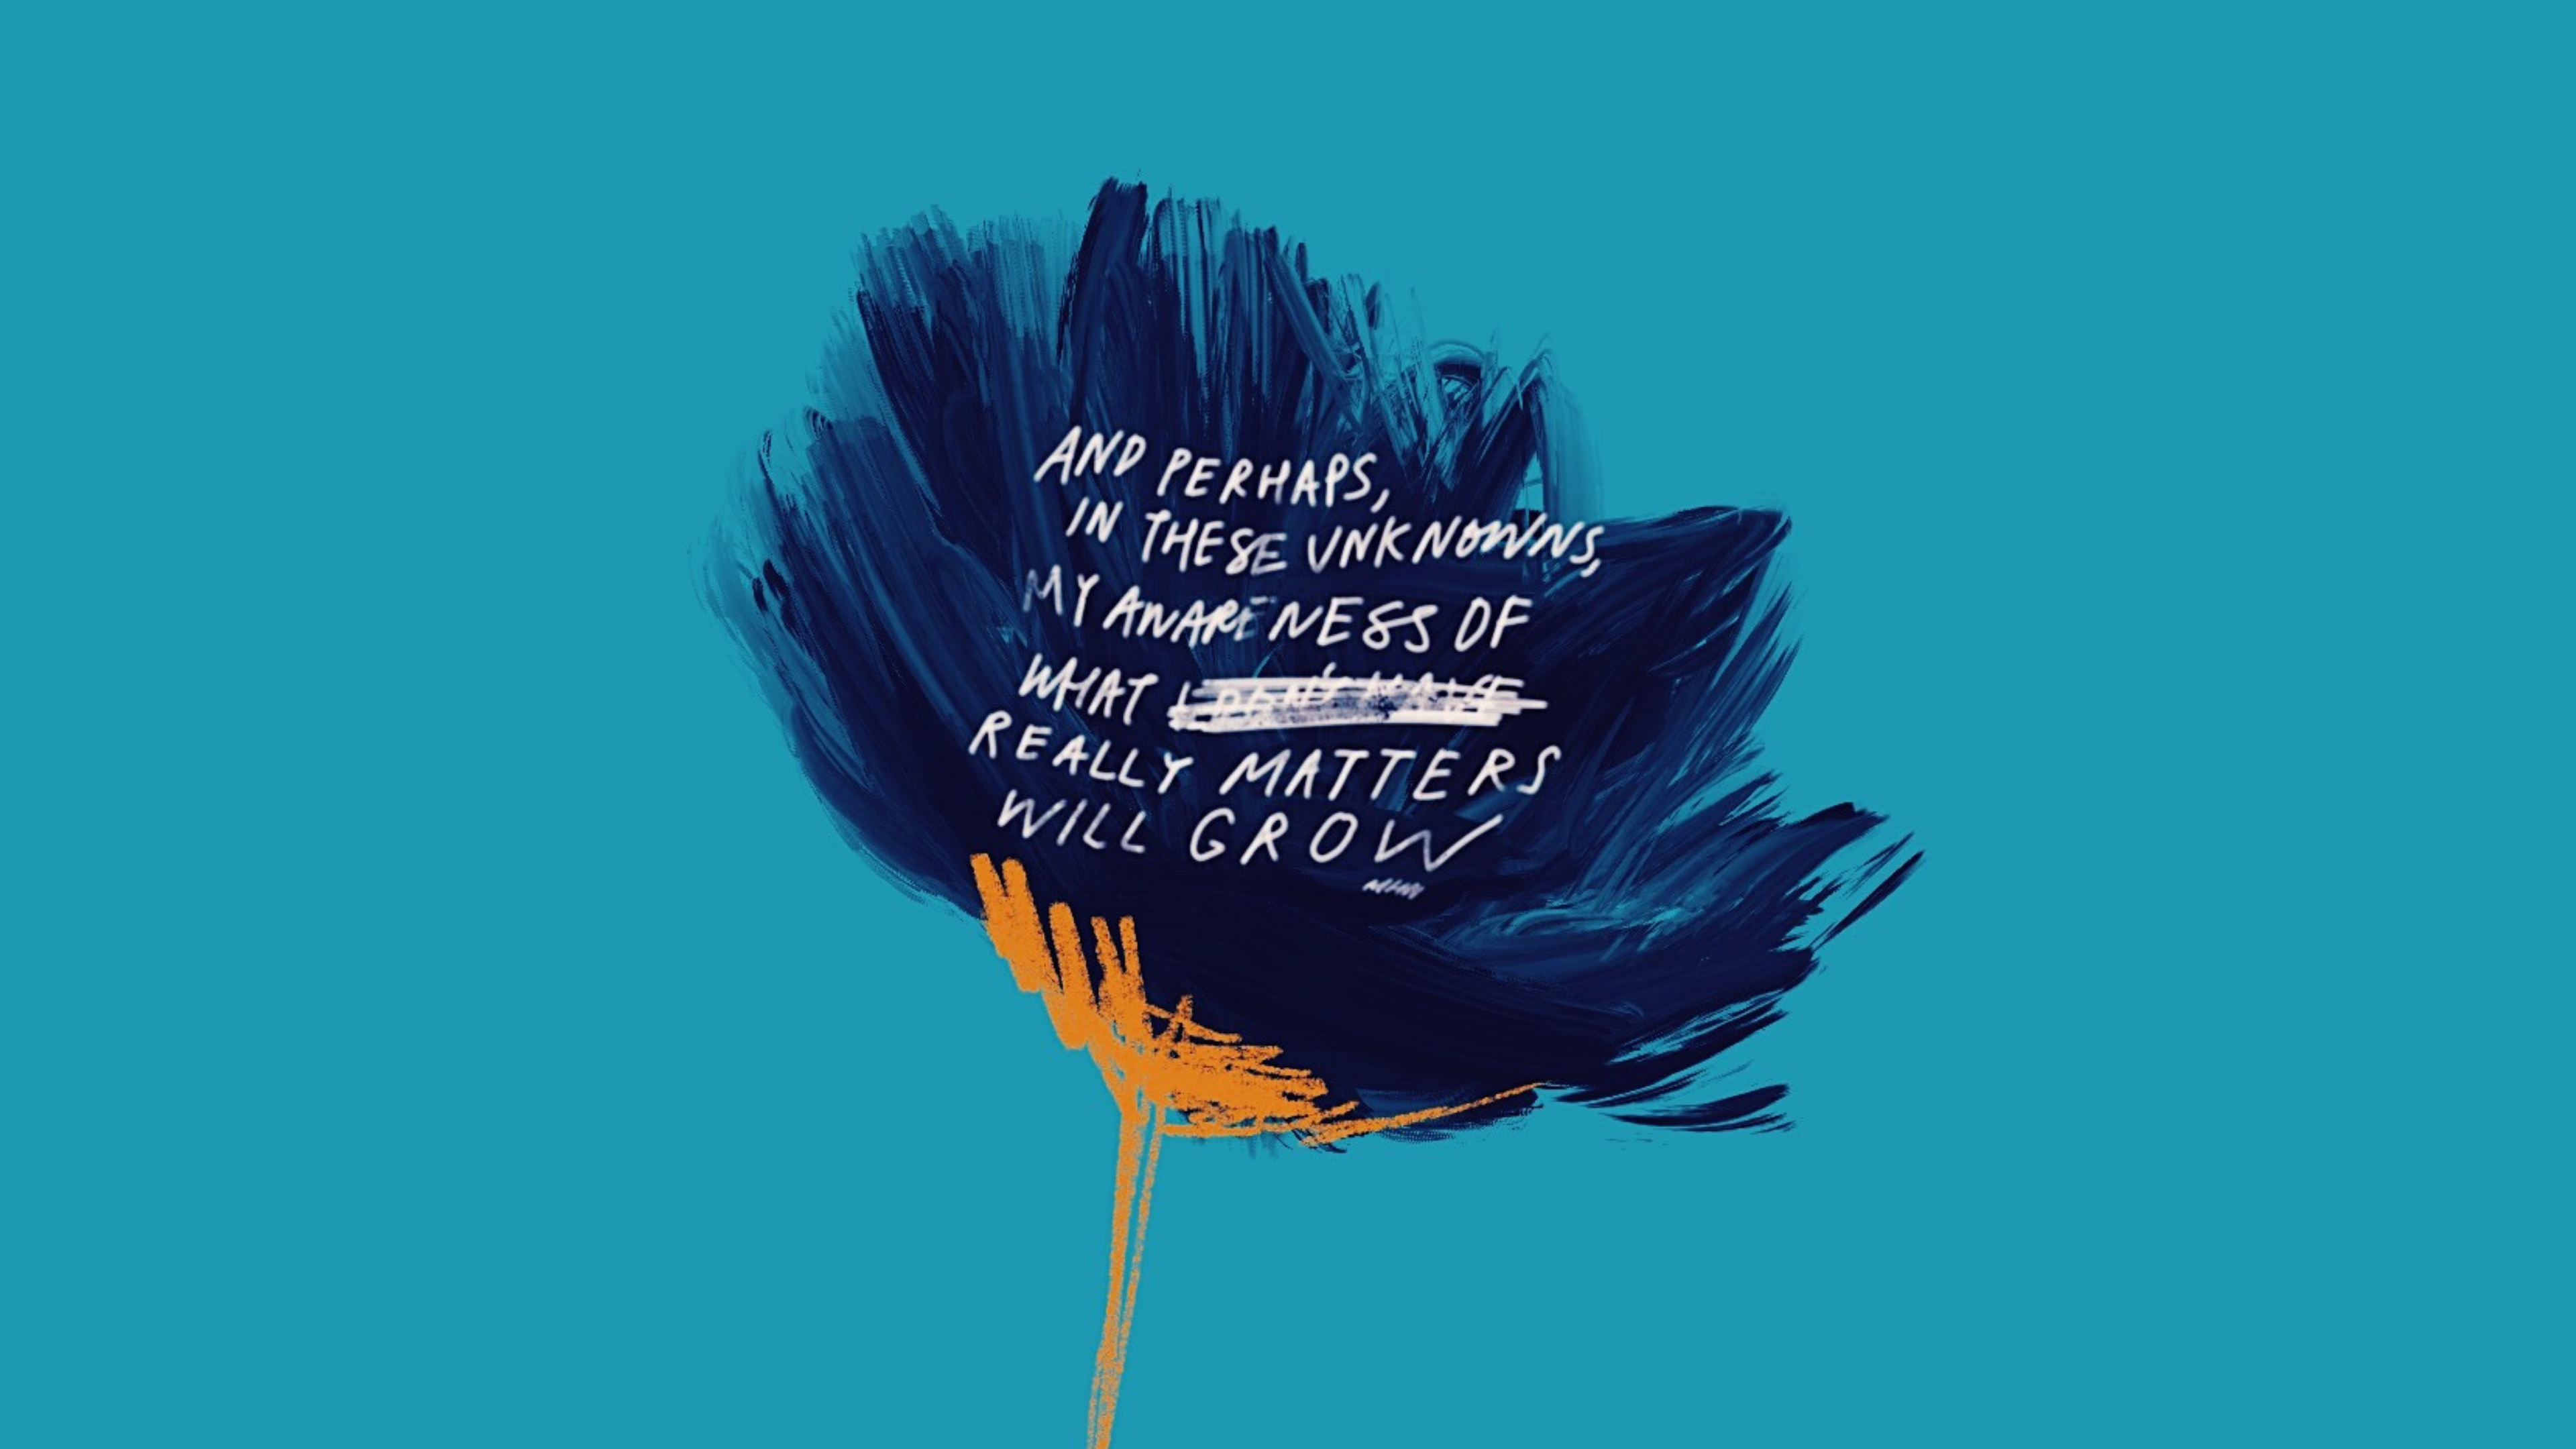 AND PERHAPS,
IN THESE UNKNOWNS,
MY AWARENESS OF
WHAT I DON'T HAVE
REALLY MATTERS
WILL GROW